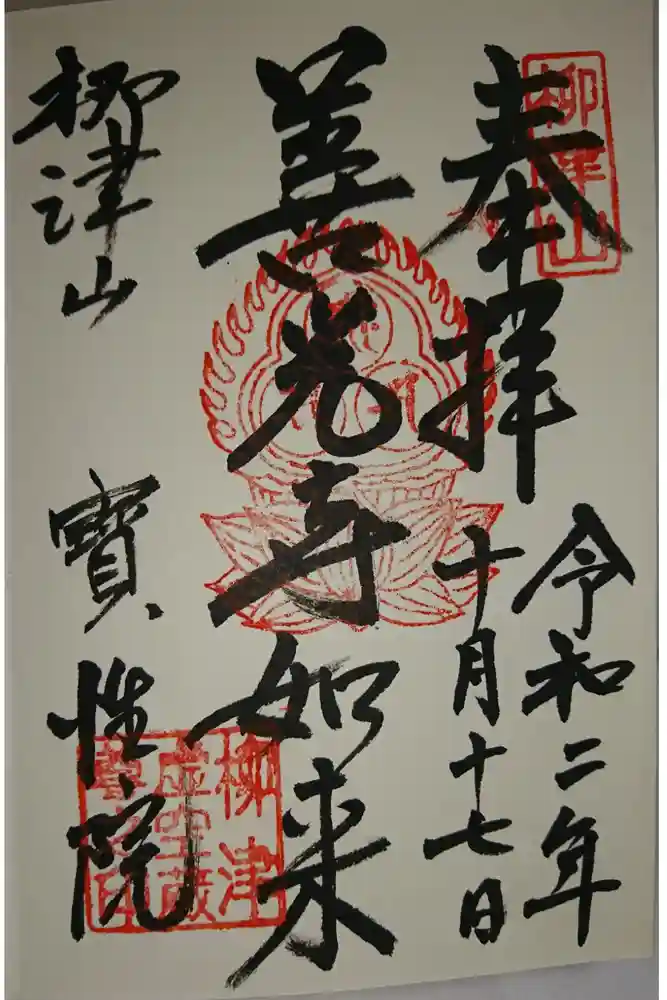 奉拝
令和二年
十月十七日
善光寺如来
柳津山
寶性院
柳津山
柳津
虚空蔵